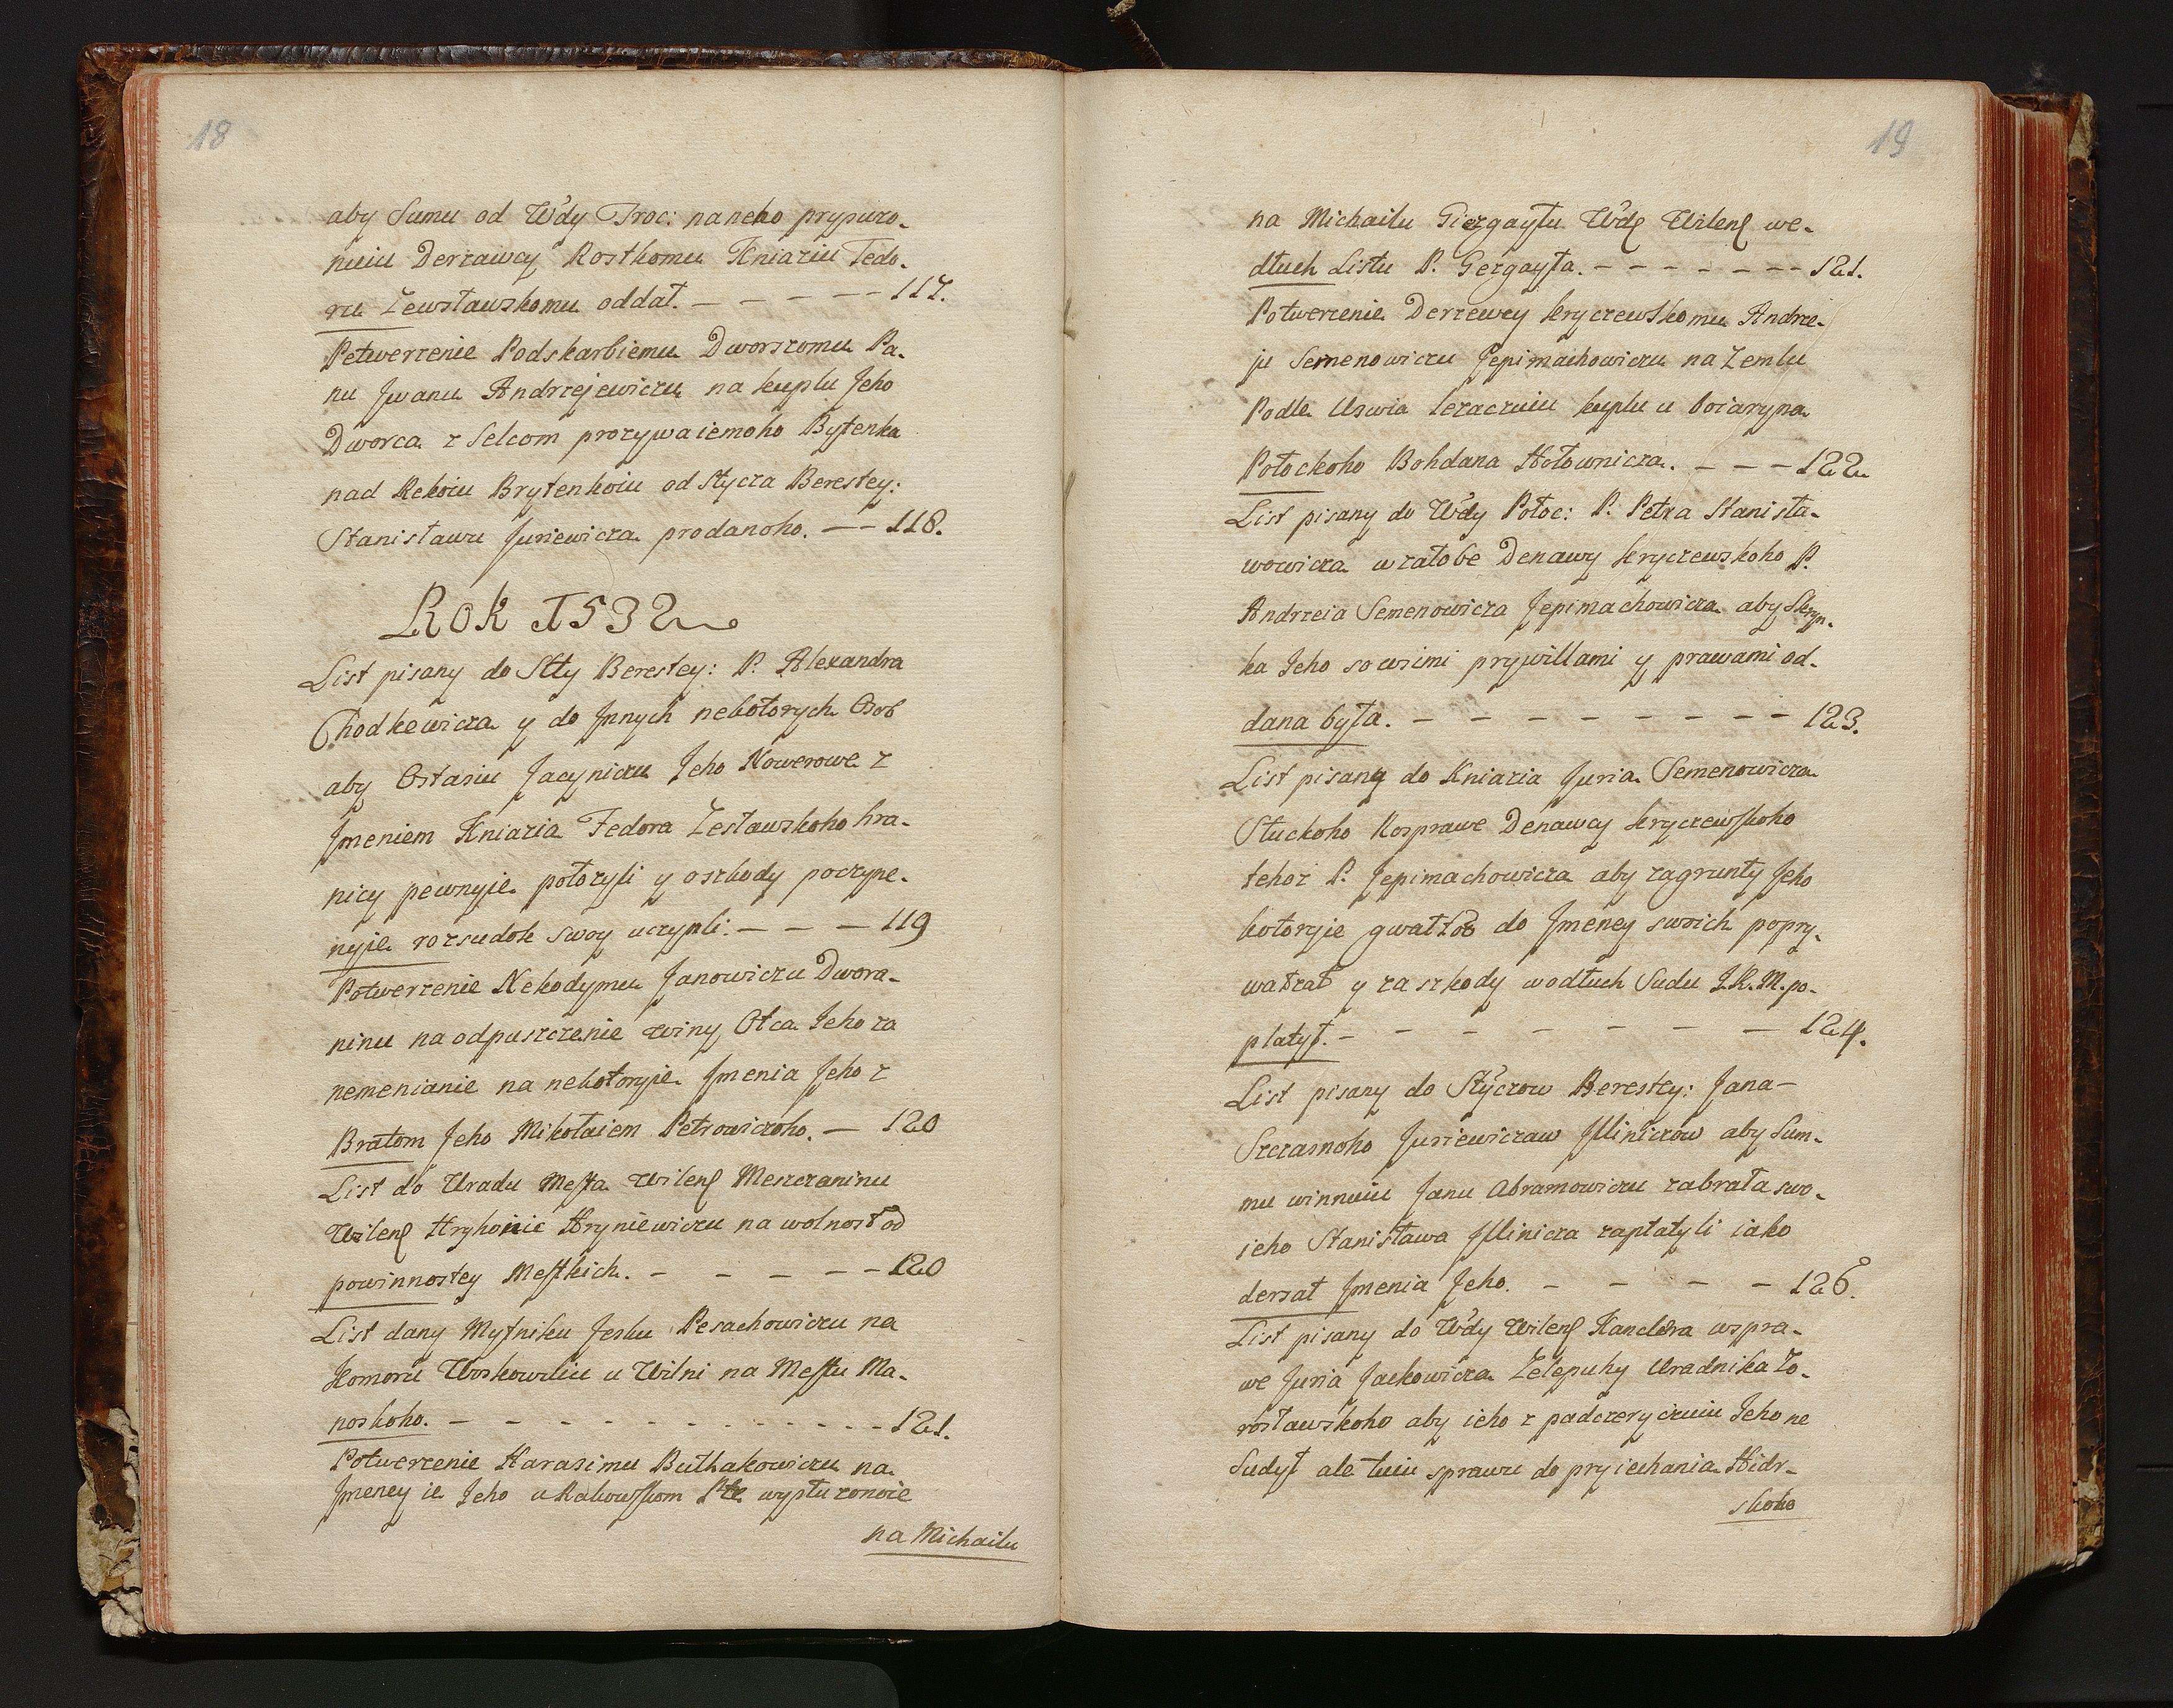 18
aby Sumu od Wdy Troc: na neho prypuzo-
nuiu Derzawcy Rostkomu Kniaziu Fedo-
ru Zewsławskomu oddał. – – – – – 117.
Potwerzenie Podskarbiemu Dworszomu Pa-
nu Jwanu Andrzejewiczu na kuplu Jeho
Dworca z Selcom prozywaiemoho Bytenka
nad Rekoiu Brytenkoiu od Stycza Berestey:
Stanisławu Juriewicza prodanoho. – – 118.
Rok 1532
List pisany do Stty Berestey: P. Alexandra
Chodkewicza y do Jnnych nekotorych Osob
aby Ostasiu Jacyniczu Jeho Nowerowe z
Jmeniem Kniazia Fedora Zesławskoho hra-
nicy pewnyje położyli y oszkody poczyne-
nyje rozsudok swoy uczynli. – – – 119
Potwerzenie Nekodymu Janowiczu Dwora-
ninu na odpuszczenie winy Otca Jeho za
nemenianie na nekotoryje Jmenia Jeho z
Bratom Jeho Mikołaiem Petrowiczoho. – 120
List do Uradu Mesta Wilens Meszczaninu
Wilens Hryhoiu Hryniewiczu na wolnost od
powinnostey Mestkich. – – – – – – 120
List dany Mytniku Jesku Pesachowiczu na
Komoru Woskowuiu u Wilni na Mestu Ma-
noskoho. – – – – – – – – – – – 121.
Potwerzenie Harasimu Buthakowiczu na
Jmeney ie Jeho u Rakowskom Pte wysłużonoie
na Michaiłu
19
na Michaiłu Giezgayłu Wdę Wilens we-
dłuch Listu P. Gezgayła. – – – – – – – 121.
Potwerzenie Derzewcy kryczewskomu Andrze-
ju Semenowiczu Jepimachowiczu na Zemlu
Podle Uswia lezaczuiu kuplu u boiaryna
Połockoho Bohdana Hołownicza. – – – 122
List pisany do Wdy Połoc: P. Petra Stanisła-
wowicza w załobe Denawy kryczewskoho P.
Andrzeia Semenowicza Jepimachowicza aby Skryn-
ka Jeho so wsimi prywillami y prawami od-
dana była. – – – – – – – – – 123.
List pisany do Kniazia Juria Semenowicza
Słuckoho Rosprawe Denawcy kryczewskoho
tehoz P. Jepimachowicza aby zagrunty Jeho
kotoryie gwałtob do Jmeney swoich popry-
wałzał y za szkody wodłuch Sudu J. K. M. po-
płatył. – – – – – – – – – 124.
List pisany do Stýczow Berestey: Jana –
Szczasnoho Juriewiczaw Jlliniczow aby Sum-
mu winnuiu Janu Abramowiczu zabrata swo-
ieho Stanisława Jllinicza zapłatyli iako
derzał Jmenia Jeho. – – – – – 126.
List pisany do Wdy Wilens Kanclera wspra-
we Juria Jackowicza Zelepuhy Uradnika Zo-
rosławskoho aby ieho z padczeryczuiu Jeho ne
Sudył ale tuiu sprawu do pryiechania Hidr-
skoho